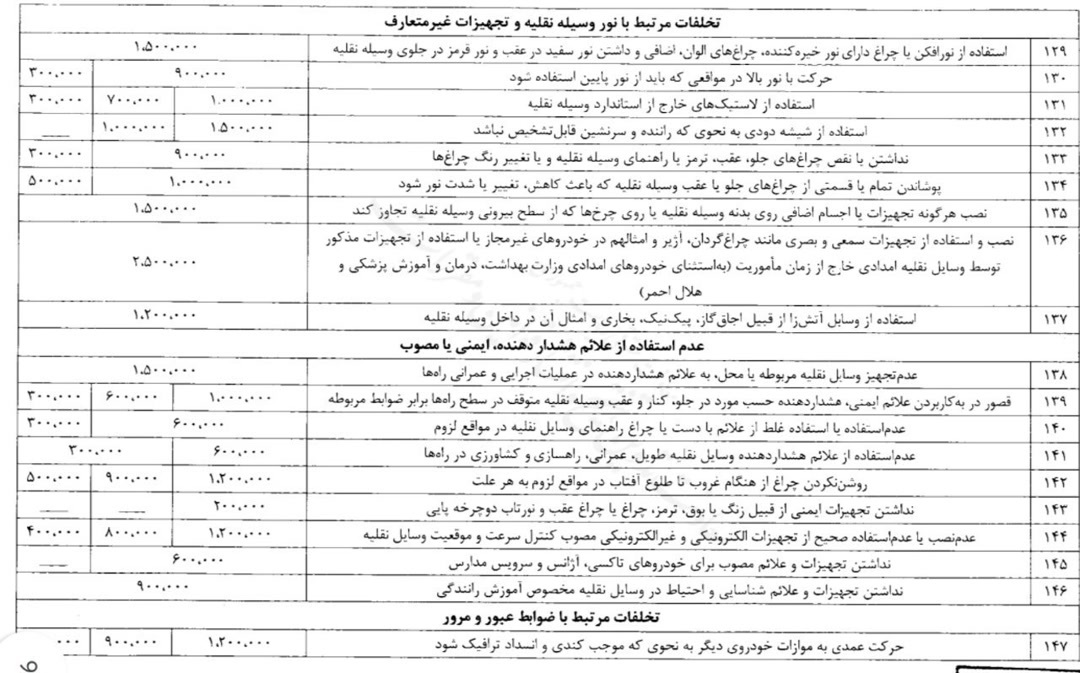 تخلفات مرتبط با نور وسیله نقلیه و تجهیزات غیرمتعارف
۱۲۹ استفاده از نورافکن یا چراغ دارای نور خیره‌کننده، چراغ‌های الوان، اضافی و داشتن نور سفید در عقب و نور قرمز در جلوی وسیله نقلیه ۱.۵۰۰.۰۰۰
۱۳۰ حرکت با نور بالا در مواقعی که باید از نور پایین استفاده شود ۹۰۰.۰۰۰ ۳۰۰.۰۰۰
۱۳۱ استفاده از لاستیک‌های خارج از استاندارد وسیله نقلیه ۱.۰۰۰.۰۰۰ ۷۰۰.۰۰۰ ۳۰۰.۰۰۰
۱۳۲ استفاده از شیشه دودی به نحوی که راننده و سرنشین قابل‌تشخیص نباشد ۱.۵۰۰.۰۰۰ ۱.۰۰۰.۰۰۰ ___
۱۳۳ نداشتن یا نقص چراغ‌های جلو، عقب، ترمز یا راهنمای وسیله نقلیه و یا تغییر رنگ چراغ‌ها ۹۰۰.۰۰۰ ۳۰۰.۰۰۰
۱۳۴ پوشاندن تمام یا قسمتی از چراغ‌های جلو یا عقب وسیله نقلیه که باعث کاهش، تغییر یا شدت نور شود ۱.۰۰۰.۰۰۰ ۵۰۰.۰۰۰
۱۳۵ نصب هرگونه تجهیزات یا اجسام اضافی روی بدنه وسیله نقلیه یا روی چرخ‌ها که از سطح بیرونی وسیله نقلیه تجاوز کند ۱.۵۰۰.۰۰۰
۱۳۶ نصب و استفاده از تجهیزات سمعی و بصری مانند چراغ‌گردان، آژیر و امثالهم در خودروهای غیرمجاز یا استفاده از تجهیزات مذکور
توسط وسایل نقلیه امدادی خارج از زمان مأموریت (به‌استثنای خودروهای امدادی وزارت بهداشت، درمان و آموزش پزشکی و ۲.۵۰۰.۰۰۰
هلال احمر)
۱۳۷ استفاده از وسایل آتش‌زا از قبیل اجاق‌گاز، پیک‌نیک، بخاری و امثال آن در داخل وسیله نقلیه ۱.۲۰۰.۰۰۰
عدم استفاده از علائم هشدار دهنده، ایمنی یا مصوب
۱۳۸ عدم‌تجهیز وسایل نقلیه مربوطه یا محل، به علائم هشداردهنده در عملیات اجرایی و عمرانی راه‌ها ۱.۵۰۰.۰۰۰
۱۳۹ قصور در به‌کاربردن علائم ایمنی، هشداردهنده حسب مورد در جلو، کنار و عقب وسیله نقلیه متوقف در سطح راه‌ها برابر ضوابط مربوطه ۱.۰۰۰.۰۰۰ ۶۰۰.۰۰۰ ۳۰۰.۰۰۰
۱۴۰ عدم‌استفاده یا استفاده غلط از علائم با دست یا چراغ راهنمای وسایل نقلیه در مواقع لزوم ۶۰۰.۰۰۰ ۳۰۰.۰۰۰
۱۴۱ عدم‌استفاده از علائم هشداردهنده وسایل نقلیه طویل، عمرانی، راهسازی و کشاورزی در راه‌ها ۶۰۰.۰۰۰ ۳۰۰.۰۰۰
۱۴۲ روشن‌نکردن چراغ از هنگام غروب تا طلوع آفتاب در مواقع لزوم به هر علت ۱.۲۰۰.۰۰۰ ۹۰۰.۰۰۰ ۵۰۰.۰۰۰
۱۴۳ نداشتن تجهیزات ایمنی از قبیل زنگ یا بوق، ترمز، چراغ یا چراغ عقب و نورتاب دوچرخه پایی ۲۰۰.۰۰۰ ___ ___
۱۴۴ عدم‌نصب یا عدم‌استفاده صحیح از تجهیزات الکترونیکی و غیرالکترونیکی مصوب کنترل سرعت و موقعیت وسایل نقلیه ۱.۲۰۰.۰۰۰ ۸۰۰.۰۰۰ ۴۰۰.۰۰۰
۱۴۵ نداشتن تجهیزات و علائم مصوب برای خودروهای تاکسی، آژانس و سرویس مدارس ۶۰۰.۰۰۰ ___
۱۴۶ نداشتن تجهیزات و علائم شناسایی و احتیاط در وسایل نقلیه مخصوص آموزش رانندگی ۹۰۰.۰۰۰
تخلفات مرتبط با ضوابط عبور و مرور
۱۴۷ حرکت عمدی به موازات خودروی دیگر به نحوی که موجب کندی و انسداد ترافیک شود ۱.۲۰۰.۰۰۰ ۹۰۰.۰۰۰